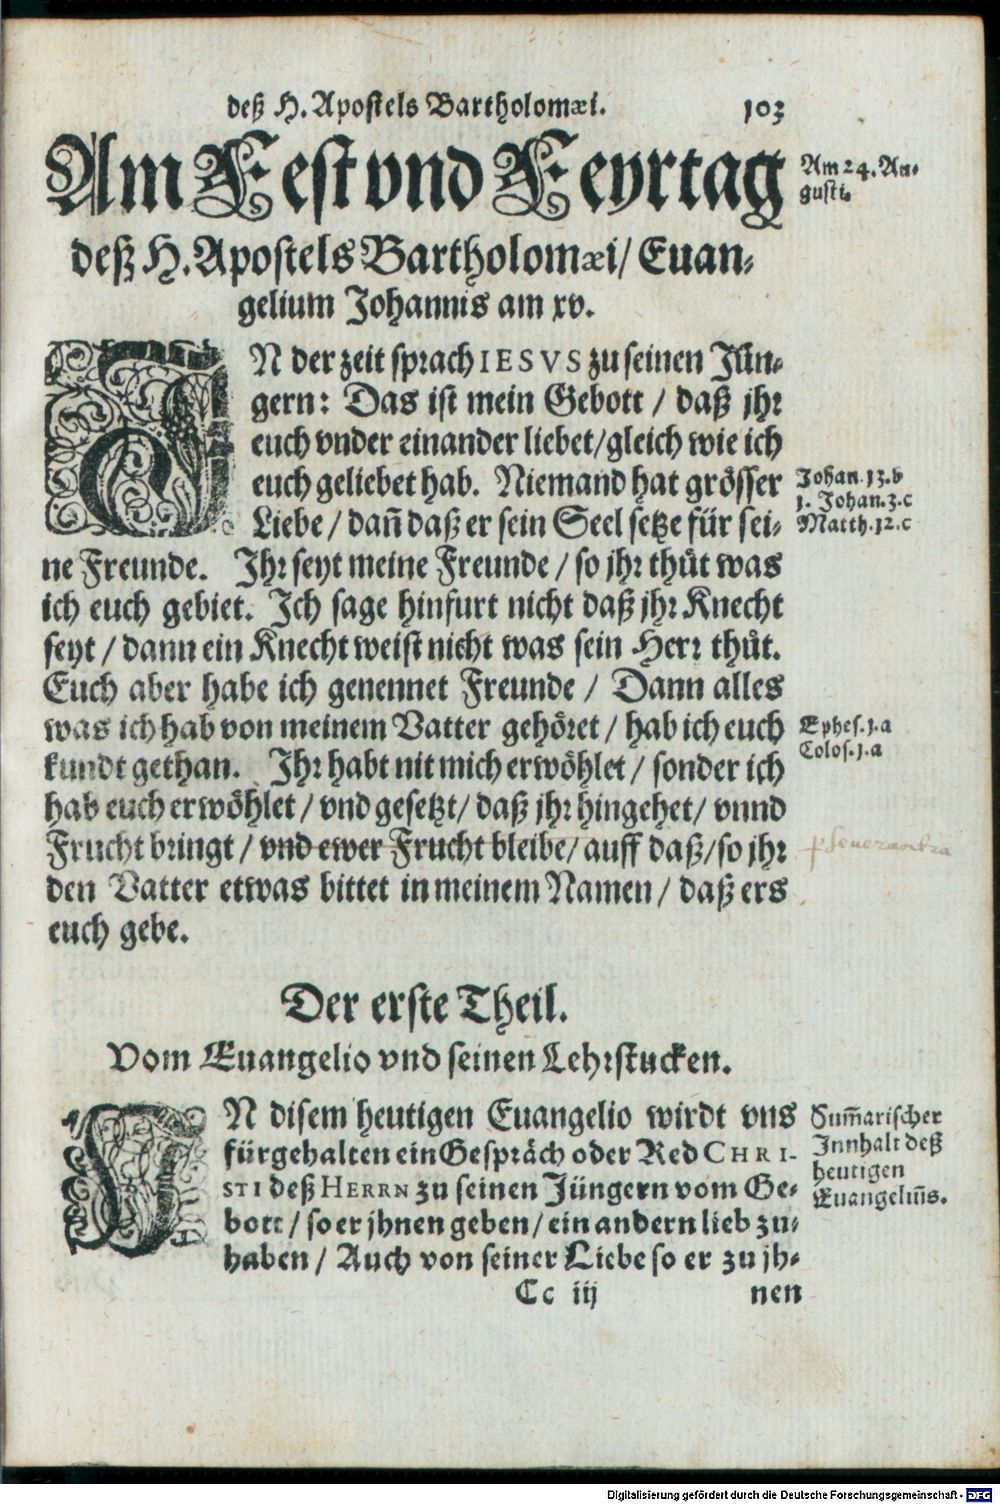 deß H. Apostels Bartholomæi. 103
Am Fest vnd Feyrtag
Am 24. Au-
gusti.
deß H. Apostels Bartholomæi/ Euan-
gelium Johannis am xv.
IN der zeit sprach IESVS zu seinen Jün-
gern: Das ist mein Gebott / daß jhr
euch vnder einander liebet/gleich wie ich
euch geliebet hab. Niemand hat grösser
Liebe / dañ daß er sein Seel setze für sei-
Johan. 13.b
1. Johan.3.c
Matth.12.c
ne Freunde. Ihr seyt meine Freunde / so jhr thůt was
ich euch gebiet. Ich sage hinfurt nicht daß jhr Knecht
seyt / dann ein Knecht weist nicht was sein Herr thůt.
Euch aber habe ich genennet Freunde / Dann alles
was ich hab von meinem Vatter gehöret / hab ich euch
kundt gethan. Ihr habt nit mich erwöhlet / sonder ich
Ephes.1.a
Colos.1.a
hab euch erwöhlet / vnd gesetzt/ daß jhr hingehet/ vnnd
Frucht bringt / vnd ewer Frucht bleibe/ auff daß/so jhr
pseuerantia
den Vatter etwas bittet in meinem Namen / daß ers
euch gebe.
Der erste Theil.
Vom Euangelio vnd seinen Lehrstucken.
IN disem heutigen Euangelio wirdt vns
fürgehalten ein Gespräch oder Red CHRI-
STI deß HERRN zu seinen Jüngern vom Ge-
bott / so er jhnen geben / ein andern lieb zu-
haben / Auch von seiner Liebe so er zu jh-
Sum̃arischer
Innhalt deß
heutigen
Euangelium̃s.
Cc iij nen
Digitalisierung gefördert durch die Deutsche Forschungsgemeinschaft - DFG